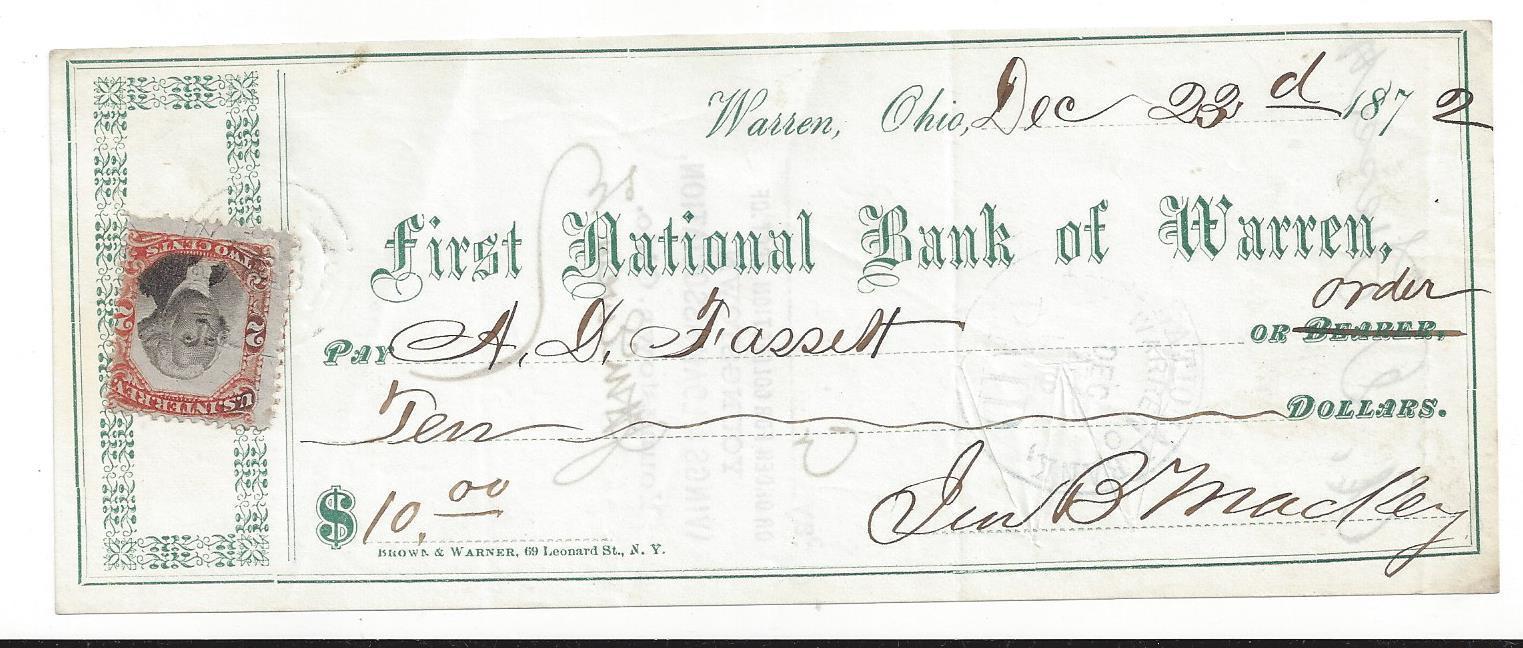 Warren, Ohio, Dec 23d 1872
First National Bank of Warren,
Pay A. D. Fassett or Bearer, order
Ten Dollars.
$10.00
Jno B Mackey
BROWN & WARNER, 69 Leonard St., N. Y.
U.S. INTER. REV.
2 2
TWO CENTS